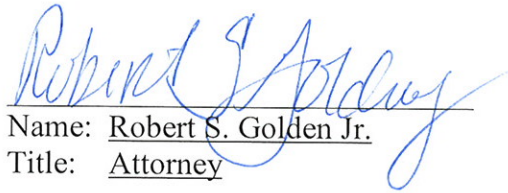 Robert S Golden Jr
Name: Robert S. Golden Jr.
Title: Attorney